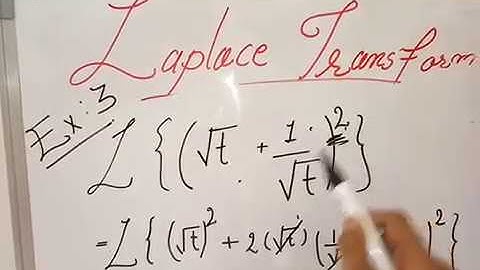 Laplace Transform
Ex:3
L{(√t + 1/√t)²}
= L{(√t)² + 2(√t)(1/√ )²}